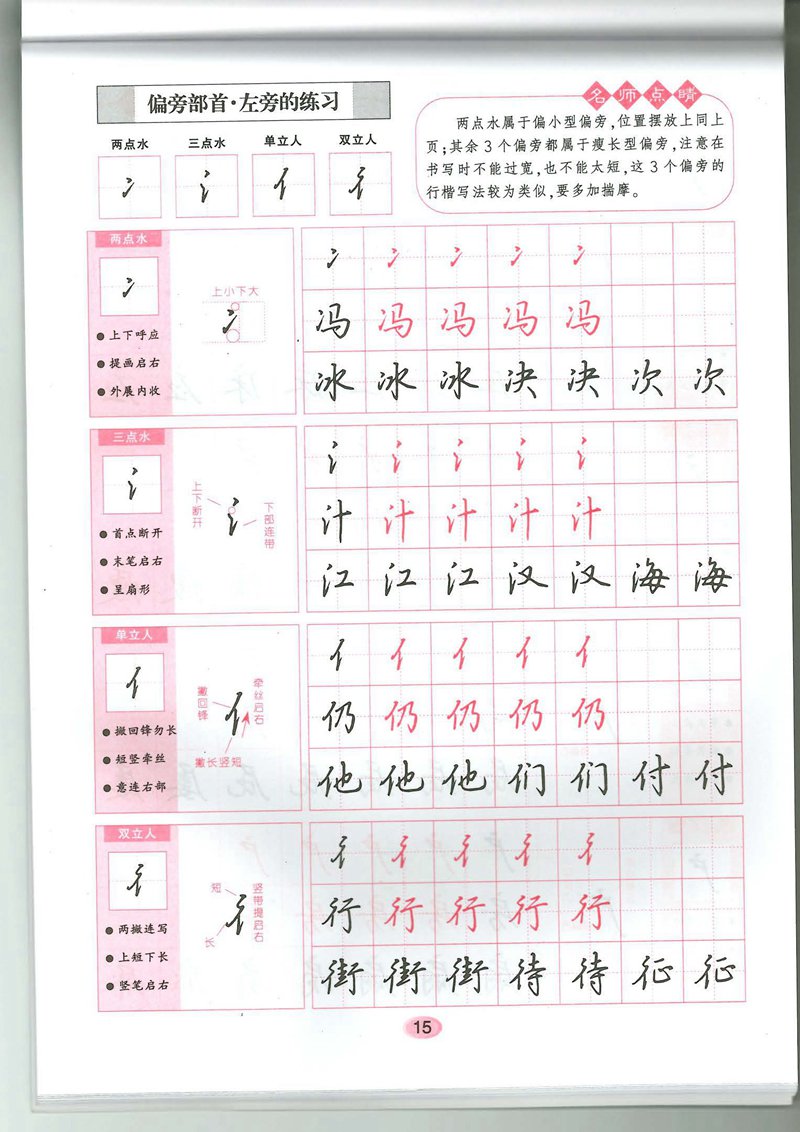 偏旁部首·左旁的练习
两点水 三点水 单立人 双立人
冫 氵 亻 彳
名师点睛
两点水属于偏小型偏旁,位置摆放上同上
页;其余3个偏旁都属于瘦长型偏旁,注意在
书写时不能过宽,也不能太短,这3个偏旁的
行楷写法较为类似,要多加揣摩。
两点水
冫
●上下呼应
●提画启右
●外展内收
上小下大
冫
冫 冫 冫 冫 冫
冯 冯 冯 冯 冯
冰 冰 冰 决 决 次 次
三点水
氵
●首点断开
●末笔启右
●呈扇形
上下断开
氵
下部连带
氵 氵 氵 氵 氵
汁 汁 汁 汁 汁
江 江 江 汉 汉 海 海
单立人
亻
●撇回锋勿长
●短竖牵丝
●意连右部
撇回锋
亻
牵丝启右
撇长竖短
亻 亻 亻 亻 亻
仍 仍 仍 仍 仍
他 他 他 们 们 付 付
双立人
彳
●两撇连写
●上短下长
●竖笔启右
短
彳
竖带提启右
长
彳 彳 彳 彳 彳
行 行 行 行 行
街 街 街 待 待 征 征
15